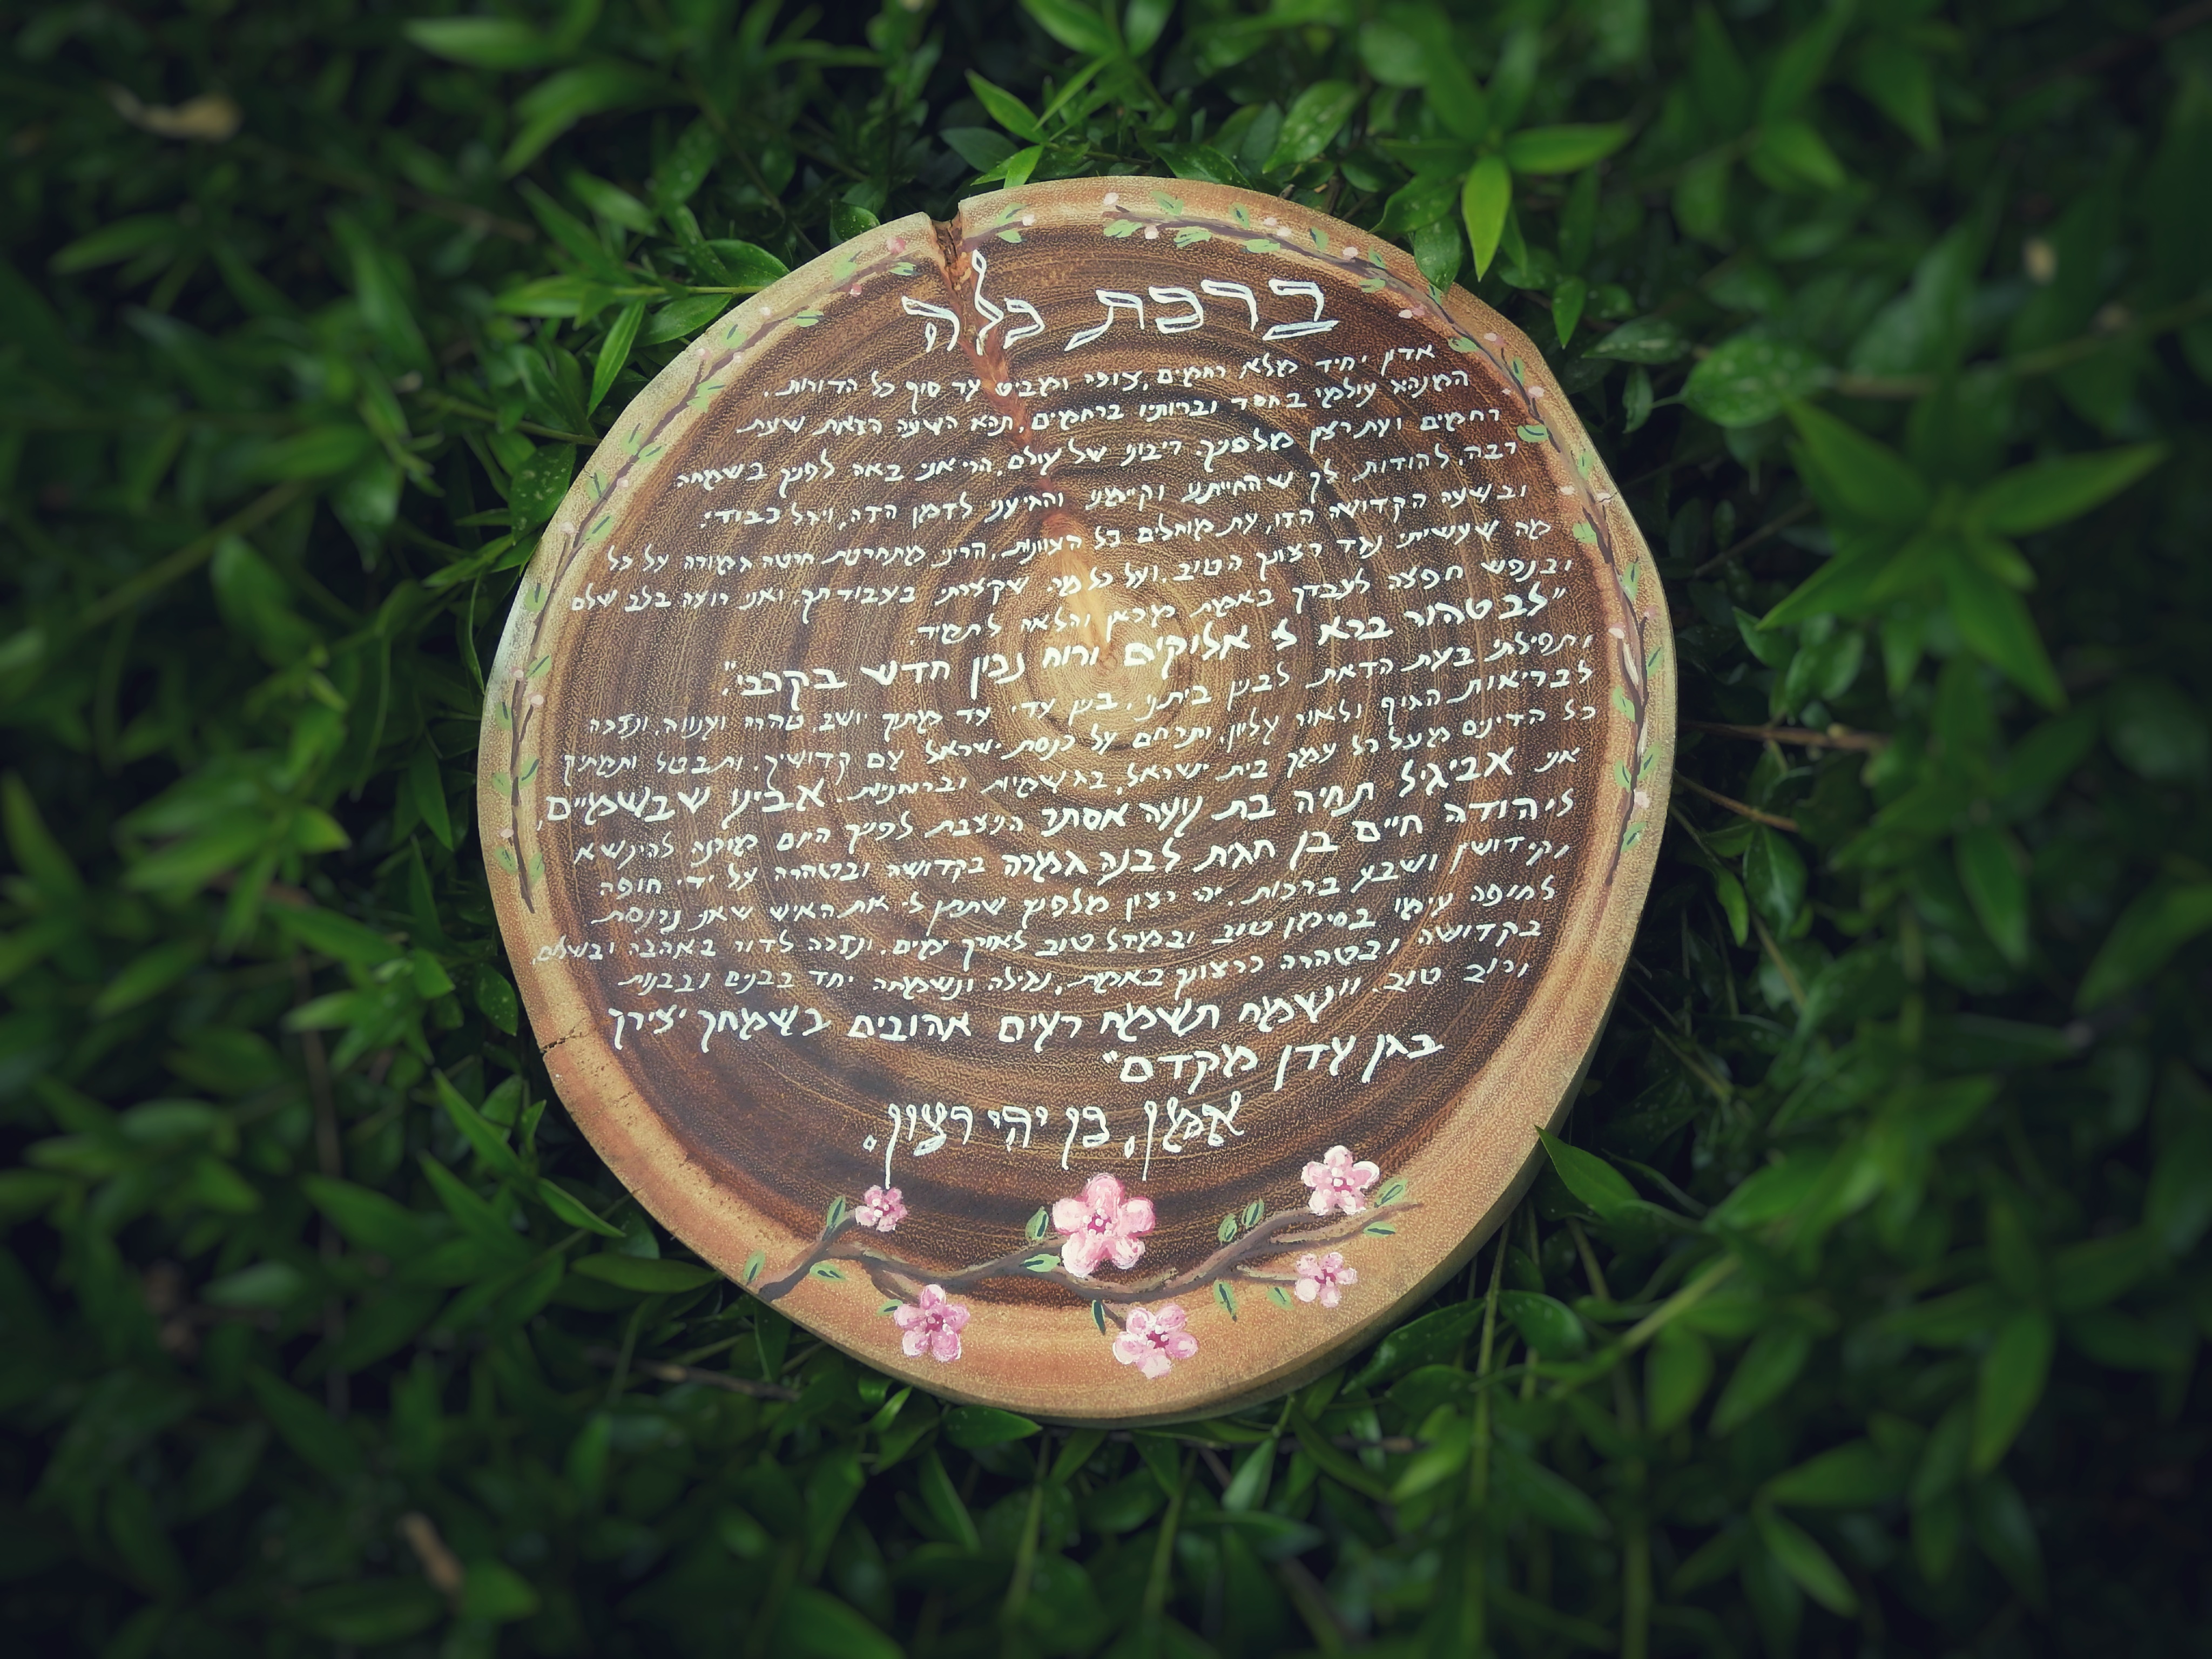 ברכת כלה
אדון יחיד מלא רחמים, צופה ומביט עד סוף כל הדורות.
המנהג עולמו בחסד ובריותיו ברחמים, תהא השעה הזאת שעת
רחמים ועת רצון מלפניך. ריבונו של עולם, הרי אני באה לפניך בשמחה
רבה, להודות לך שהחייתנו וקיימתנו והגיענו לזמן הזה,
ובשעה הקדושה הזו, עת מוחלים כל העוונות, הריני מתחרטת חרטה גמורה על כל
מה שעשיתי נגד רצונך הטוב. ועל כל מה שקצרתי בעבודתך, ואני רוצה בלב שלם
ובנפש חפצה לעבדך באמת מכאן והלאה לתמיד.
"לב טהור ברא לי אלוקים ורוח נכון חדש בקרבי".
ותפילתי בעת הזאת לבנין ביתנו, בנין עדי עד מתוך יושב, טהרה וענווה, ונזכה
לבריאות הגוף ולאור עליון, ותרחם על כנסת ישראל עם קדושיך, ותבטל ותמתיק
כל הדינים מעל כל עמך בית ישראל, בגשמיות וברוחניות. אבינו שבשמיים,
אני אביגיל תחיה בת נועה אסתר הניצבת לפניך היום מוכנה להינשא
ליהודה חיים בן חגית לבנה גמרה בקדושה ובטהרה על ידי חופה
וקידושין ושבע ברכות. יהי רצון מלפניך שתתן לי את האיש שאני נכנסת
לחופה עימו בסימן טוב ובמזל טוב לאורך ימים. ונזכה לדור באהבה ובשלום
בקדושה ובטהרה כרצונך באמת, נגילה ונשמחה יחד בבנים ובבנות
ורוב טוב. "שמח תשמח רעים אהובים כשמחך יצירך
בגן עדן מקדם"
אמן, כן יהי רצון.